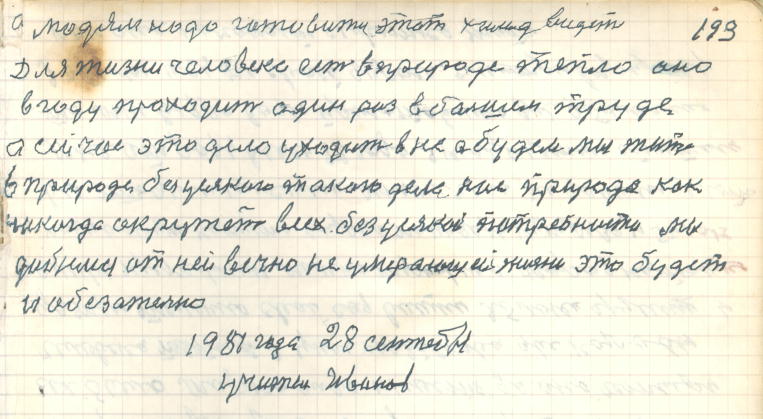 а людям надо готовити этот холод видет 193
Для жизни человека ест в природе тепло оно
в году проходит один раз в большем труде
а сейчас это дело уходит в не а будем ми жит
в природе без усякого такого дела нас природа как
никогда окружет всех без усякой потребности ми
добемся от ней вечно не умерающей жизни это будет
и обезательно
1981 года 28 сентября
учител Иванов